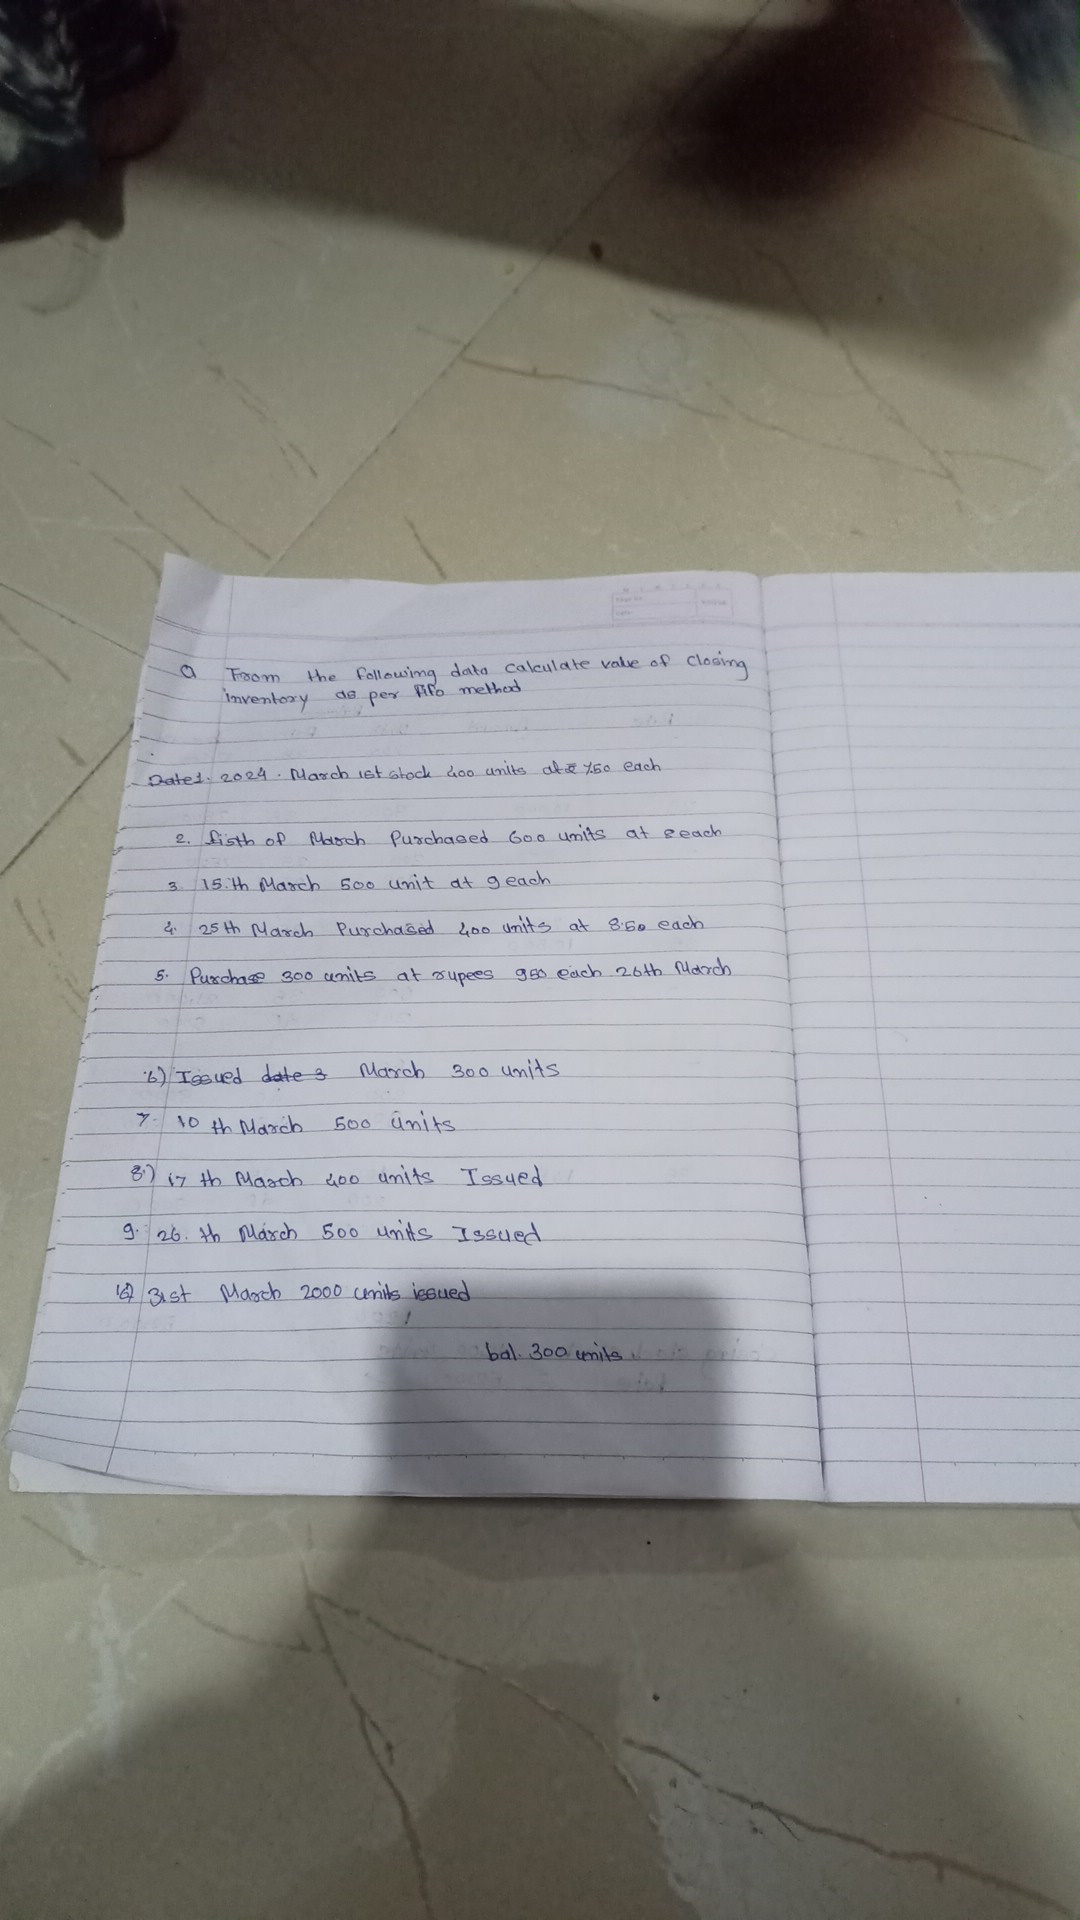 Q From the following data calculate value of closing
inventory as per fifo method
Date1. 2024. March 1st stock 400 units at ₹ 750 each
2. fifth of March Purchased 600 units at 8 each
3 15.th March 500 unit at 9 each
4. 25th March Purchased 400 units at 8.50 each
5. Purchase 300 units at rupees 950 each 26th March
6) Issued date 3 March 300 units
7. 10 th March 500 units
8.) 17 th March 400 units Issued
9. 26. th March 500 units Issued
10) 31st March 2000 units issued
bal. 300 units.